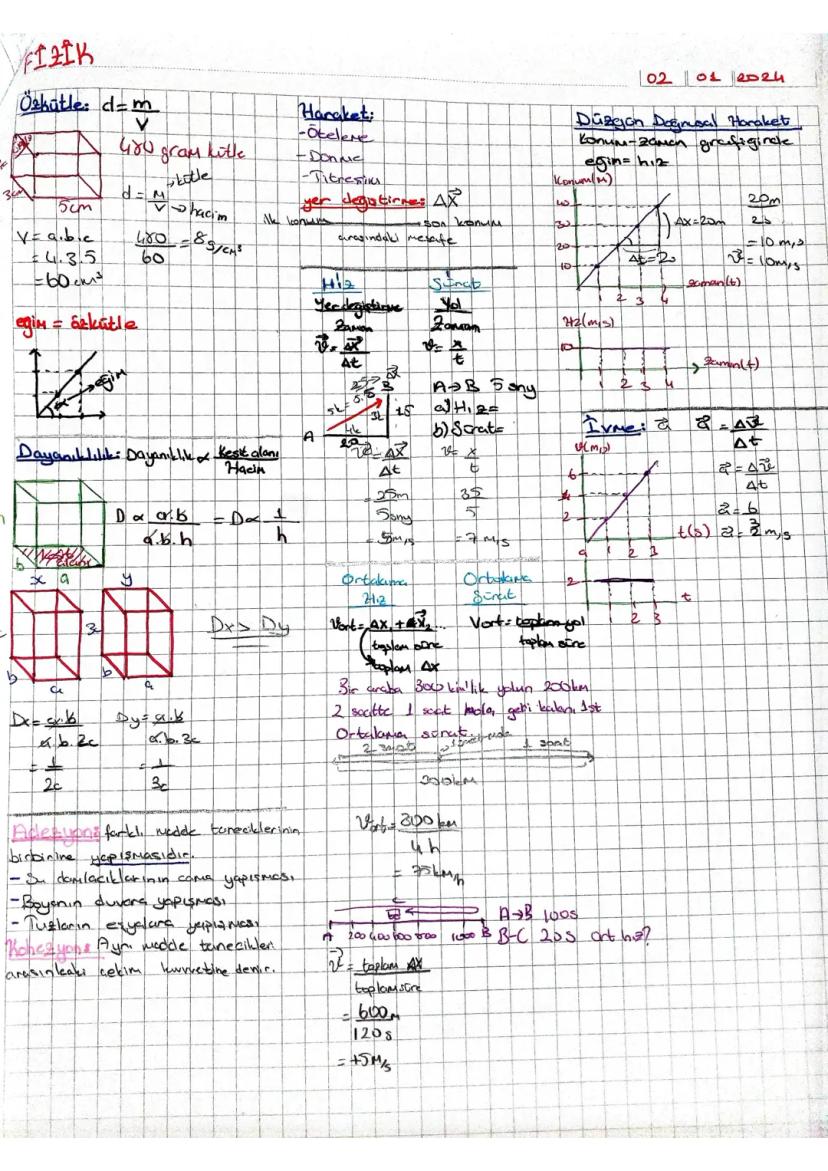 FİZİK
02 01 2024
Özkütle: d=m/V
480 gram kütle
3cm
5cm
d = m → kütle
V → hacim
V = a.b.c
= 4.3.5
= 60 cm³
480/60 = 8 g/cm³
eğim = özkütle
eğim
Dayanıklılık: Dayanıklılık ∝ Kesit alanı
Hacim
D ∝ a.b/a.b.h = D ∝ 1/h
b
a
x
y
b
a
3c
b
a
Dx > Dy
Dx = a.b/a.b.2c
= 1/2c
Dy = a.b/a.b.3c
= 1/3c
Adezyon: farklı madde taneciklerinin
birbirine yapışmasıdır.
- Su damlacıklarının cama yapışması
- Boyanın duvara yapışması
- Tozların eşyalara yapışması
Kohezyon: Aynı madde tanecikleri
arasındaki çekim kuvvetine denir.
Haraket:
- Öteleme
- Dönme
- Titreşim
yer değiştirme: ΔX⃗
ilk konum son konum
arasındaki mesafe
Hız
Yer değiştirme
Zaman
v⃗ = ΔX⃗/Δt
Sürat
Yol
Zaman
v = x/t
A→B 5 sny
a) Hız =
b) Sürat =
A
B
ΔX⃗
15
20
v⃗ = ΔX⃗/Δt
= 25m/5sny
= 5m/s
v = x/t
35/5
= 7 m/s
Ortalama Hız
Vort = ΔX₁ + ΔX⃗₂ ...
toplam süre
toplam ΔX
Ortalama Sürat
Vort = toplam yol
toplam süre
Bir araba 300 km'lik yolun 200km
2 saatte 1 saat mola, geri kalanı 1st
Ortalama sürat.
2 saat
1 saat
300km
Vort = 300 km/4 h
= 75km/h
C
A 200 400 600 800 1000 B
A→B 100s
B-C 20s ort hız?
v⃗ = toplam ΔX
toplam süre
= 600m/120s
= +5m/s
Düzgün Doğrusal Haraket
Konum-zaman grafiğinde
eğim = hız
Konum(m)
40
30
20
10
ΔX=20m
Δt=2s
2 3 4
zaman(t)
20m
2s
= 10 m/s
v⃗ = 10m/s
Hız(m/s)
10
1 2 3 4
zaman(t)
İvme: a⃗ a⃗ = Δv⃗/Δt
v(m/s)
6
4
2
0 1 2 3
t(s)
a⃗ = Δv⃗/Δt
a⃗ = 6/3
a⃗ = 2 m/s
2
2 3
t